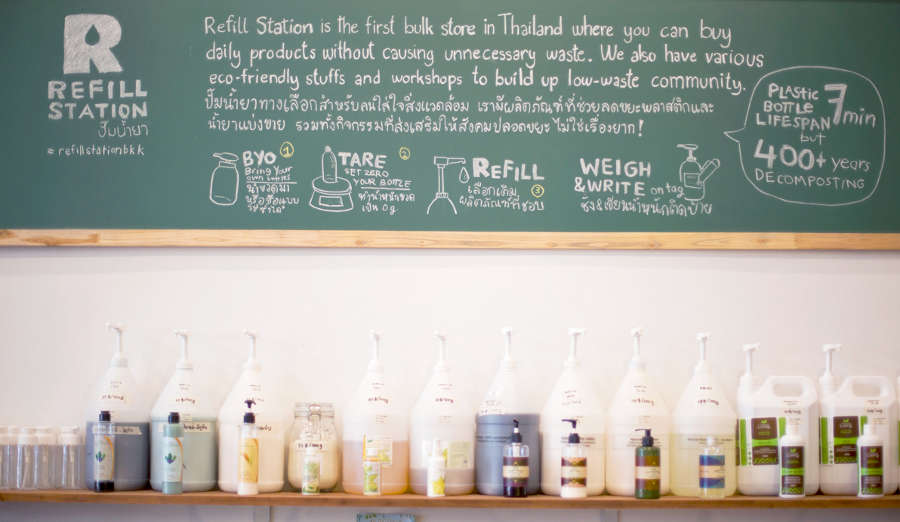 R
REFILL
STATION
ปั๊มน้ำยา
#refillstationbkk
Refill Station is the first bulk store in Thailand where you can buy
daily products without causing unnecessary waste. We also have various
eco-friendly stuffs and workshops to build up low-waste community.
ปั๊มน้ำยาทางเลือกสำหรับคนใส่ใจสิ่งแวดล้อม เรามีผลิตภัณฑ์ที่ช่วยลดขยะพลาสติกและ
น้ำยาแบ่งขาย รวมทั้งกิจกรรมที่ส่งเสริมให้สังคมปลอดขยะ ไม่ใช่เรื่องยาก!
BYO 1
Bring Your
own bottles
นำขวดมา
หรือซื้อแบบ
TARE 2
SET ZERO
YOUR BOTTLE
ชั่งน้ำหนักขวด
เป็น 0g
REFILL
เลือกเติม 3
ผลิตภัณฑ์ที่ชอบ
WEIGH
&WRITE on tag
ชั่ง&เขียนน้ำหนักติดป้าย
PLASTIC
BOTTLE
LIFESPAN 7 min
but
400+ years
DECOMPOSTING